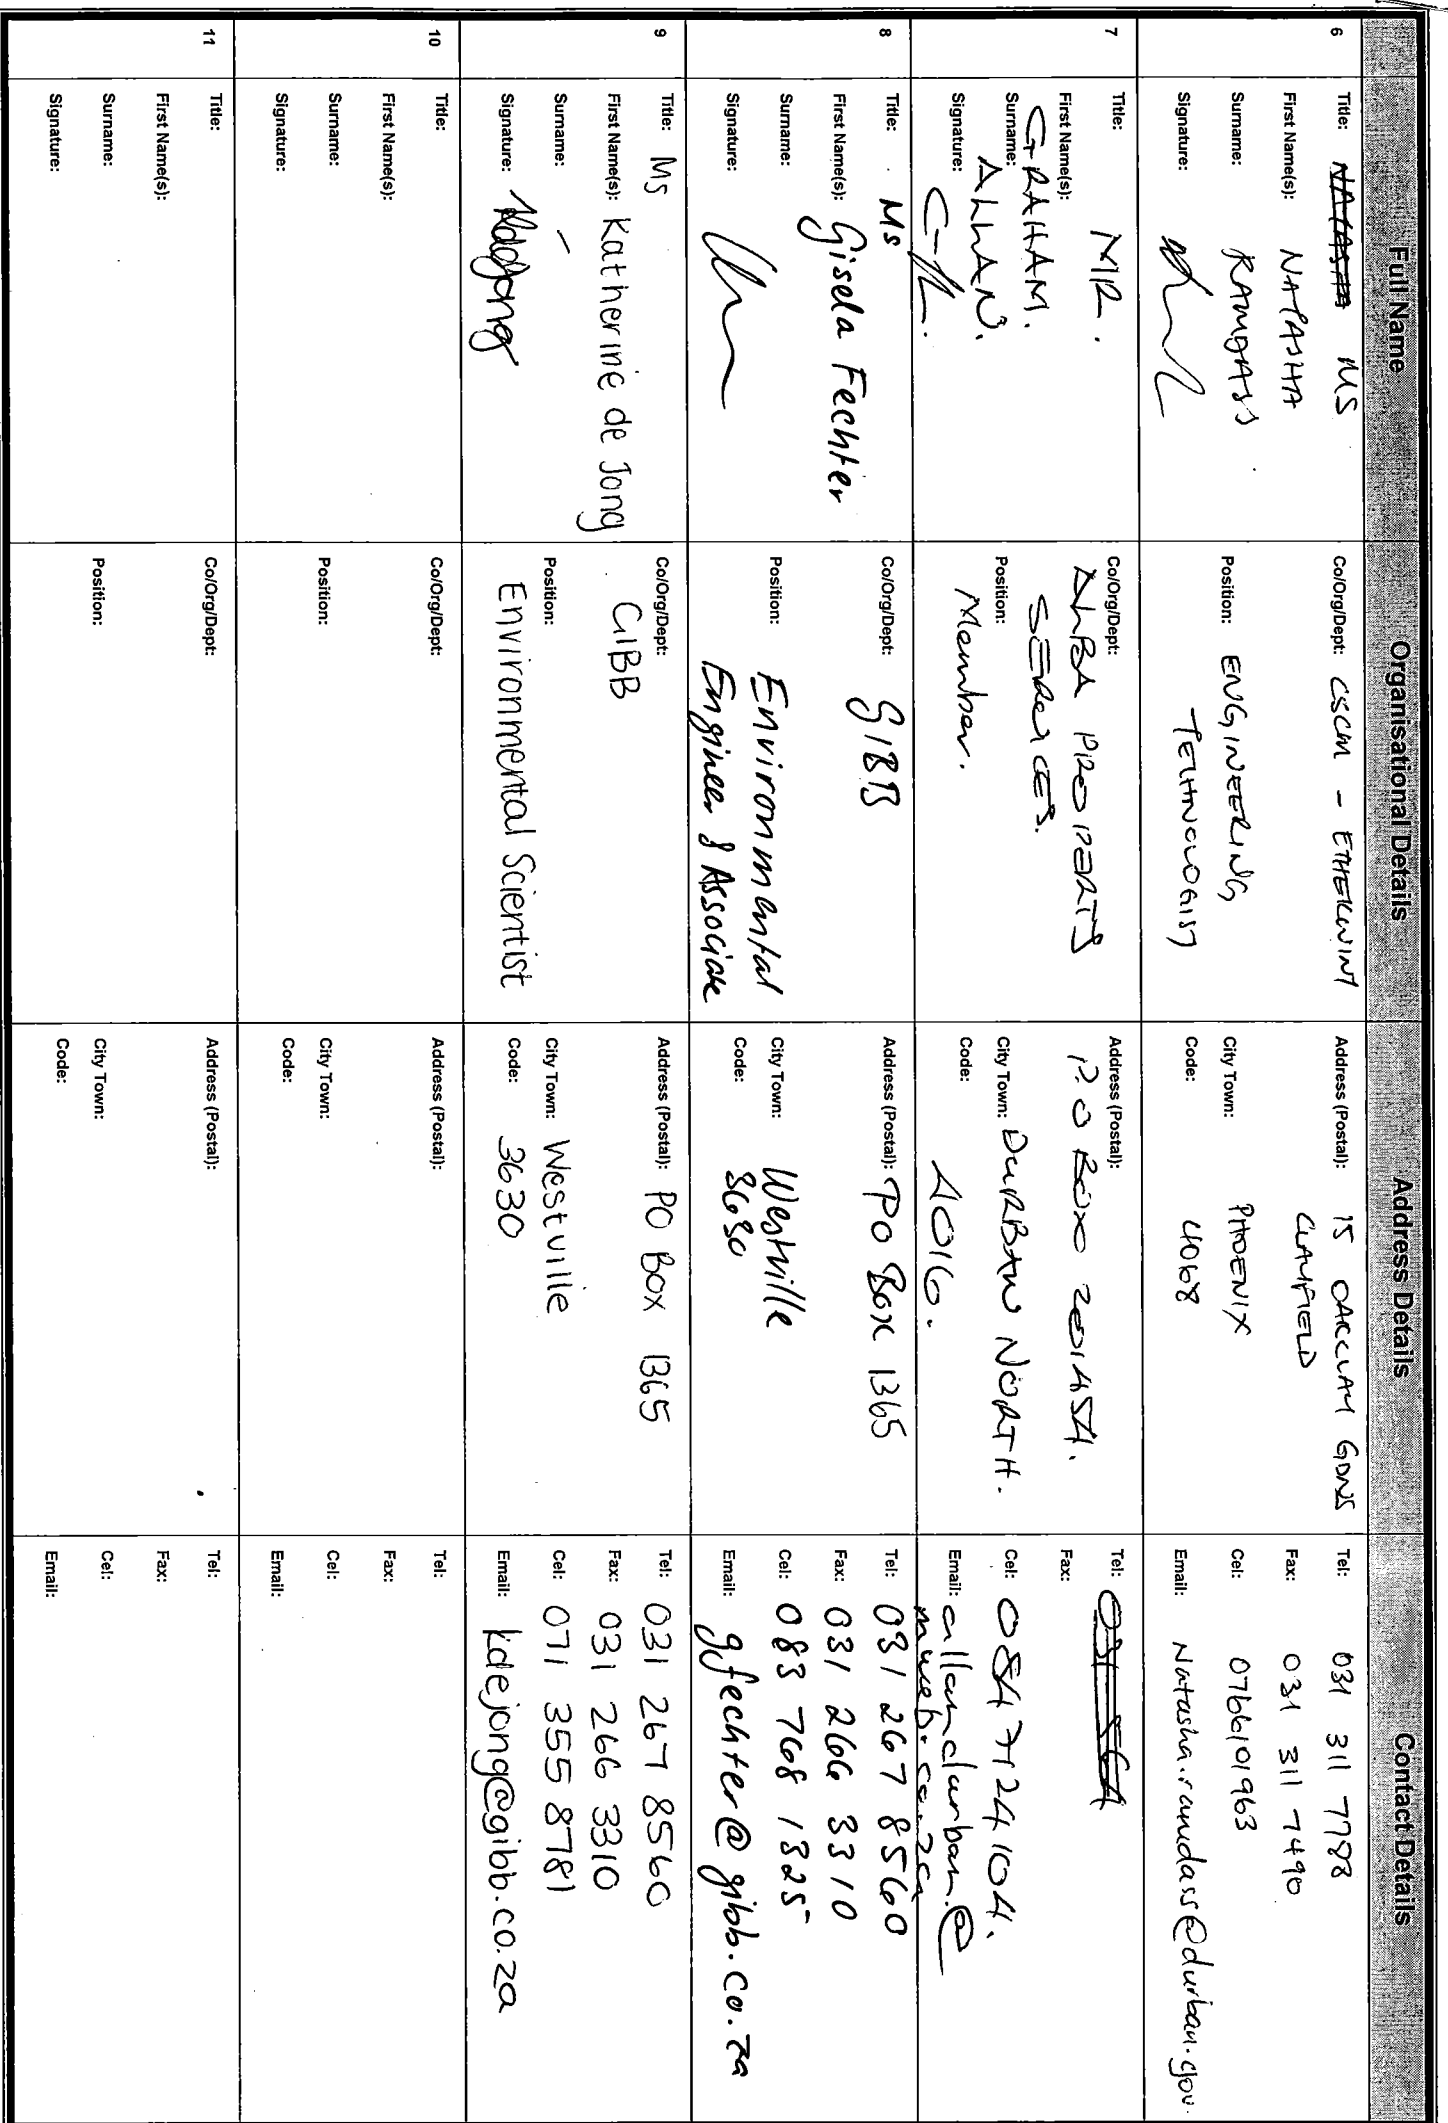 Full Name
Organisational Details
Address Details
Contact Details
6
Title: NATASHA MS
First Name(s): NATASHA
Surname: RAMDASS
Signature:
Co/Org/Dept: CSCM - ETHEKWINI
Position: ENGINEERING
TECHNOLOGIST
Address (Postal): 15 OAKCLAM GDNS
CLAYFIELD
City Town: PHOENIX
Code: 4068
Tel: 031 311 7788
Fax: 031 311 7490
Cel: 0766101963
Email: Natasha.ramdass@durban.gov.
7
Title: MR.
First Name(s): GRAHAM.
Surname: ALLAN.
Signature:
Co/Org/Dept:
PROPERTY
SERVICES.
Position:
Member.
Address (Postal):
P.O BOX 201454.
City Town: DURBAN NORTH.
Code: 4016.
Tel: 031 564
Fax:
Cel: 0847124104.
Email: allandurban@
mweb.co.za
8
Title: Ms
First Name(s): Gisela Fechter
Surname:
Signature:
Co/Org/Dept: GIBB
Position: Environmental
Engineer & Associate
Address (Postal): PO Box 1365
City Town: Westville
Code: 3630
Tel: 031 267 8560
Fax: 031 266 3310
Cel: 083 768 1325
Email: gfechter@gibb.co.za
9
Title: Ms
First Name(s): Katherine de Jong
Surname:
Signature: KdeJong
Co/Org/Dept:
GIBB
Position:
Environmental Scientist
Address (Postal): PO Box 1365
City Town: Westville
Code: 3630
Tel: 031 267 8560
Fax: 031 266 3310
Cel: 071 355 8781
Email: kdejong@gibb.co.za
10
Title:
First Name(s):
Surname:
Signature:
Co/Org/Dept:
Position:
Address (Postal):
City Town:
Code:
Tel:
Fax:
Cel:
Email:
11
Title:
First Name(s):
Surname:
Signature:
Co/Org/Dept:
Position:
Address (Postal):
City Town:
Code:
Tel:
Fax:
Cel:
Email: